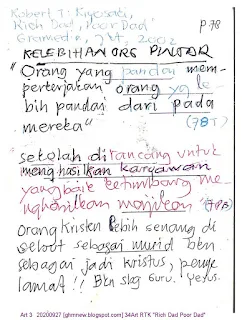 Robert T. Kiyosaki,
Rich Dad, Poor Dad
Gramedia, Jkt, 2002
P.78
KELEBIHAN ORG PINTAR
"Orang yang pandai mem-
perkerjakan orang yg le
bih pandai dari pada
mereka"
(78T)
sekolah dirancang untuk
menghasilkan karyawan
yang baik ketimbang me
nghasilkan majikan (78B)
Orang Kristen lebih senang di
sebut sebagai murid bkn
sebagai jadi kristus, penye
lamat!! Bkn sbg Guru. Yesus.
Art 3 20200927 [ghmnew.blogspot.com] 34Art RTK "Rich Dad Poor Dad"